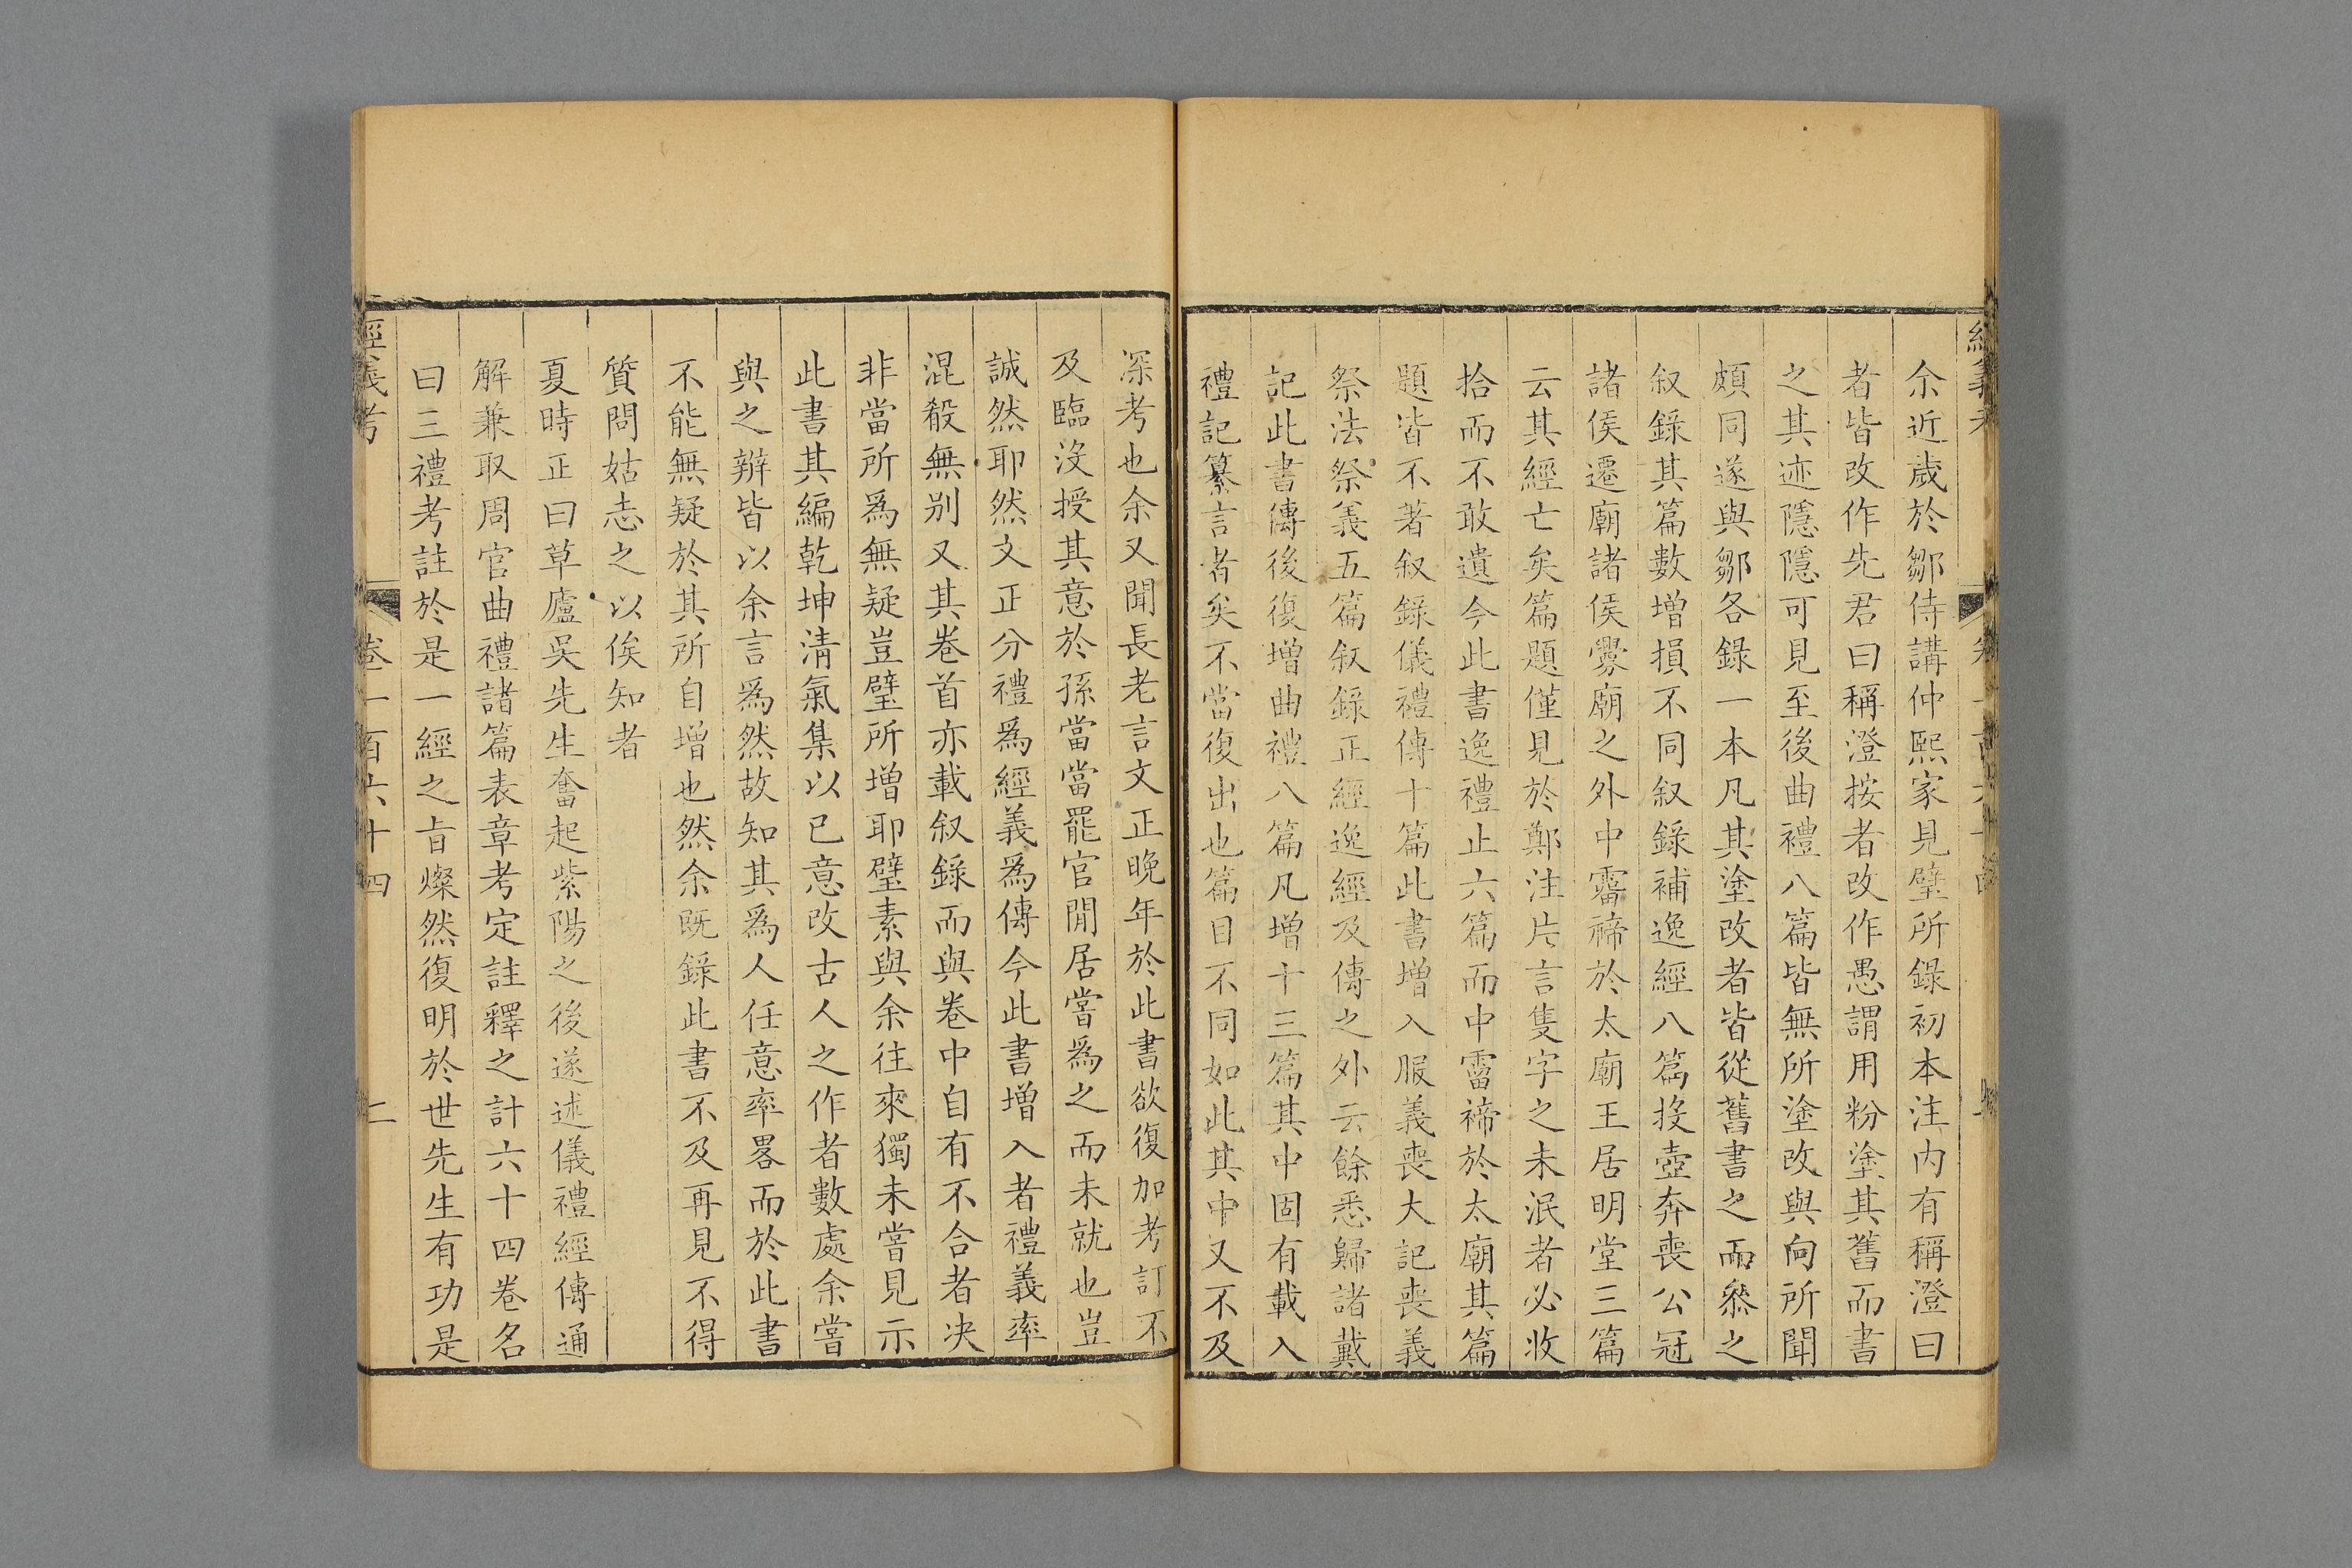 余近歲於鄒侍講仲熙家見璧所錄初本注内有稱澄曰
者皆改作先君曰稱澄按者改作愚謂用粉塗其舊而書
之其迹隱隱可見至後曲禮八篇皆無所塗改與向所聞
頗同遂與鄒各錄一本凡其塗改者皆從舊書之而叅之
叙錄其篇數增損不同叙錄補逸經八篇投壺奔喪公冠
諸侯遷廟諸侯釁廟之外中霤禘於太廟王居明堂三篇
云其經亡矣篇題僅見於鄭注片言隻字之未泯者必收
拾而不敢遺今此書逸禮止六篇而中霤禘於太廟其篇
題皆不著叙錄儀禮傳十篇此書增入服義喪大記喪義
祭法祭義五篇叙錄正經逸經及傳之外云餘悉歸諸戴
記此書傳後復增曲禮八篇凡增十三篇其中固有載入
禮記纂言者矣不當復出也篇目不同如此其中又不及
深考也余又聞長老言文正晚年於此書欲復加考訂不
及臨沒授其意於孫當當罷官閒居嘗爲之而未就也豈
誠然耶然文正分禮爲經義爲傳今此書增入者禮義率
混殽無别又其卷首亦載叙錄而與卷中自有不合者决
非當所爲無疑豈璧所增耶璧素與余往來獨未嘗見示
此書其編乾坤清氣集以已意改古人之作者數處余嘗
與之辯皆以余言爲然故知其爲人任意率畧而於此書
不能無疑於其所自增也然余既錄此書不及再見不得
質問姑志之以俟知者
夏時正曰草廬吳先生奮起紫陽之後遂述儀禮經傳通
解兼取周官曲禮諸篇表章考定註釋之計六十四卷名
曰三禮考註於是一經之㫖燦然復明於世先生有功是
經義考
卷一百六十四
二